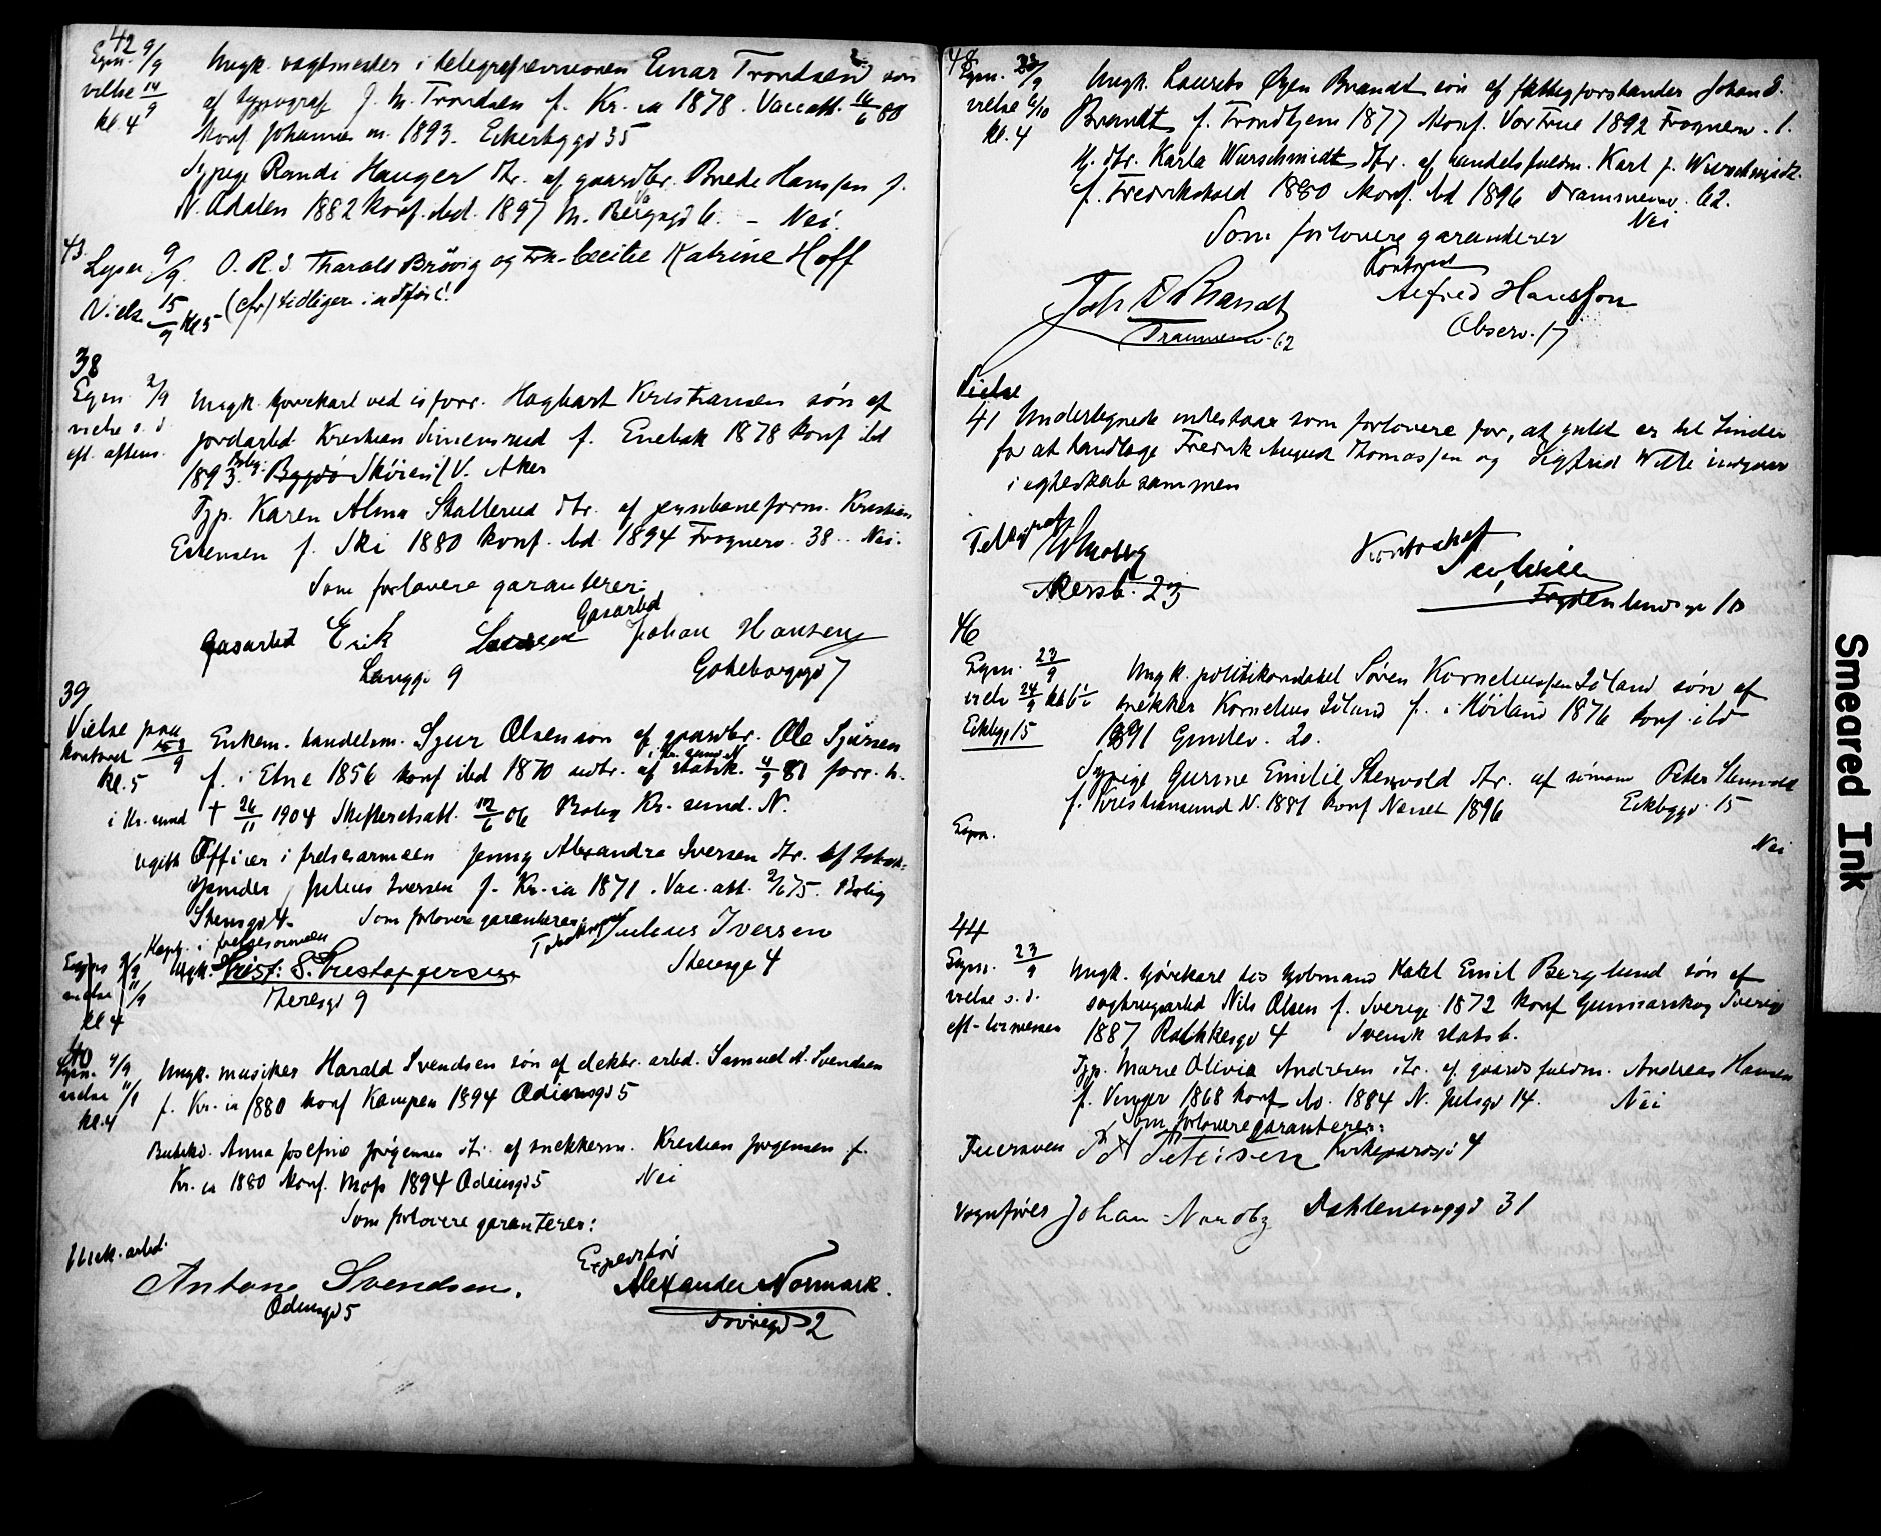 42
Egm. 9/9
vielse 14/9
kl. 4
Ungk. vagtmester i telegrafvæsenet Einar Trondsen søn
af typograf J. M. Trondsen f. Kr.ia 1878. Vac.att. 16/6 80
Konf Johannes m. 1893. Eckersbggd 35
Sypige Randi Hauger dtr. af gaardbr. Brede Hansen f.
N. Aadalen 1882 konf. ibd. 1897 Bergsgd 6. – Nei.
43.
Lysn. 9/9.
Vielse 15/9 kl 5
O.R.S. Tharald Brøvig og Frk. Cecilie Katrine Hoff
(cfr) tidligere indført.
38
Egm 2/9
vielse s. d.
eft. aftens.
Ungk. kjørekarl ved isforr. Hagbart Kristiansen søn af
jordarbd. Kristian Simensrud f. Enebak 1878 konf ibd
1893. Bolig: Bygdø Skøien V. Aker
Tjp. Karen Alma Skallerud dtr. af jernbaneform. Kristian
Evensen f. Ski 1880 konf. ibd. 1894 Frognerv. 38. Nei.
Som forlovere garanterer:
Gasarbd Erik Larsen
Langg. 9
Gasarbd Johan Hansen
Gøteborggd 7
39
Vielse paa
kontoret 15/9
kl. 5
Enkem. handelsm. Sjur Olsen søn af gaardbr. Ole Sjursen
f. i Etne 1856 konf ibd 1870 sedv. af i Kr. sund N.
i Kr. sund † 26/11 1904 Skifteretsatt. 12/6 06 Bolig Kr. sund. N.
ugift Officer i frelsesarmeen Jenny Alexandra Iversen dtr. af tobak-
spinder Julius Iversen f. Kr.ia 1871. Vac. att. 2/6 75. Bolig
Stensgd 4. Som forlovere garanterer:
Kapt. i frelsesarmeen
Krist. S. Kristoffersen
Theresgd 9
Julius Iversen
Stensgt 4
Egm 9/9
vielse 11/9
kl 4
Ugk.
40
Egm. 4/9
vielse 11/9
kl. 4
Ungk. musiker Harald Svendsen søn af elektr. arbd. Samuel A. Svendsen
f. Kr.ia 1880 konf Kampen 1894 Odinsgd 5
Butikd. Anna Josefine Jørgensen dtr. af snekkerm. Kristian Jørgensen f.
Kr.ia 1880 konf. Mosj 1894 Odinsgd 5 Nei
Som forlovere garanterer:
Elektr. arbd.
Antone Svendsen.
Odinsgd 5
Expeditør
Alexander Normark.
Tovregd 2
48
Egm. 28/9
vielse 6/10
kl. 4
Ungk. Laurits Øyen Brandt søn af fattigforstander Johan D.
Brandt f. Trondhjem 1877 konf. Vor Frue 1892 Frognerv. 1.
Hj. dtr. Karla Wurschmidt dtr. af handelsfuldm. Karl J. Wurschmidt
f. Fredrikshald 1880 konf. ibd 1896 Drammensv. 62.
Nei
Som forlovere garanterer
Joh D Brandt
Drammensv. 62
Kontorist
Alfred Hansson
Observ. 17
Vielse
41 Undertegnede indestaar som forlovere for, at intet er til hinder
for at handlage Fredrik August Thomassen og Sigfrid Wille indgaar
i egteskab sammen
Akersb. 23
Kontorchef
Frydenlundsgt 10
46
Egm. 23/9
vielse 24/9 kl 6½
Eckbgg 15
Ungk. politikonstabel Søren Korneliussen Iiland søn af
snekker Kornelius Iiland f. i Høiland 1876 konf. ibd
1891 Gimlev. 20.
Sypige Gurine Emilie Stenvold dtr. af sømand Peter Stenvold
f. Kristiansund N. 1881 konf Nesset 1896 Eckbggd. 15
Nei
Egm.
44
Egm. 23/9
vielse s. d.
Ungk. kjørekarl hos kjøbmand Hatel Emil Berglund søn af
sagbrugsarbd Nils Olsen f. Sverige 1872 konf Gunnarskog Sverig
1887 Rathkesgd 4 Svensk statsb.
Tjp. Marie Olivia Andresen dtr. af gaardsfuldm. Andreas Hansen
f. Vinger 1868 konf. do. 1884 N. Juelsgd 14. Nei
Som forlovere garanterer:
Petersen Kirkegaardsgd 4
Vognfører Johan Nordby Dahlenenggd 31